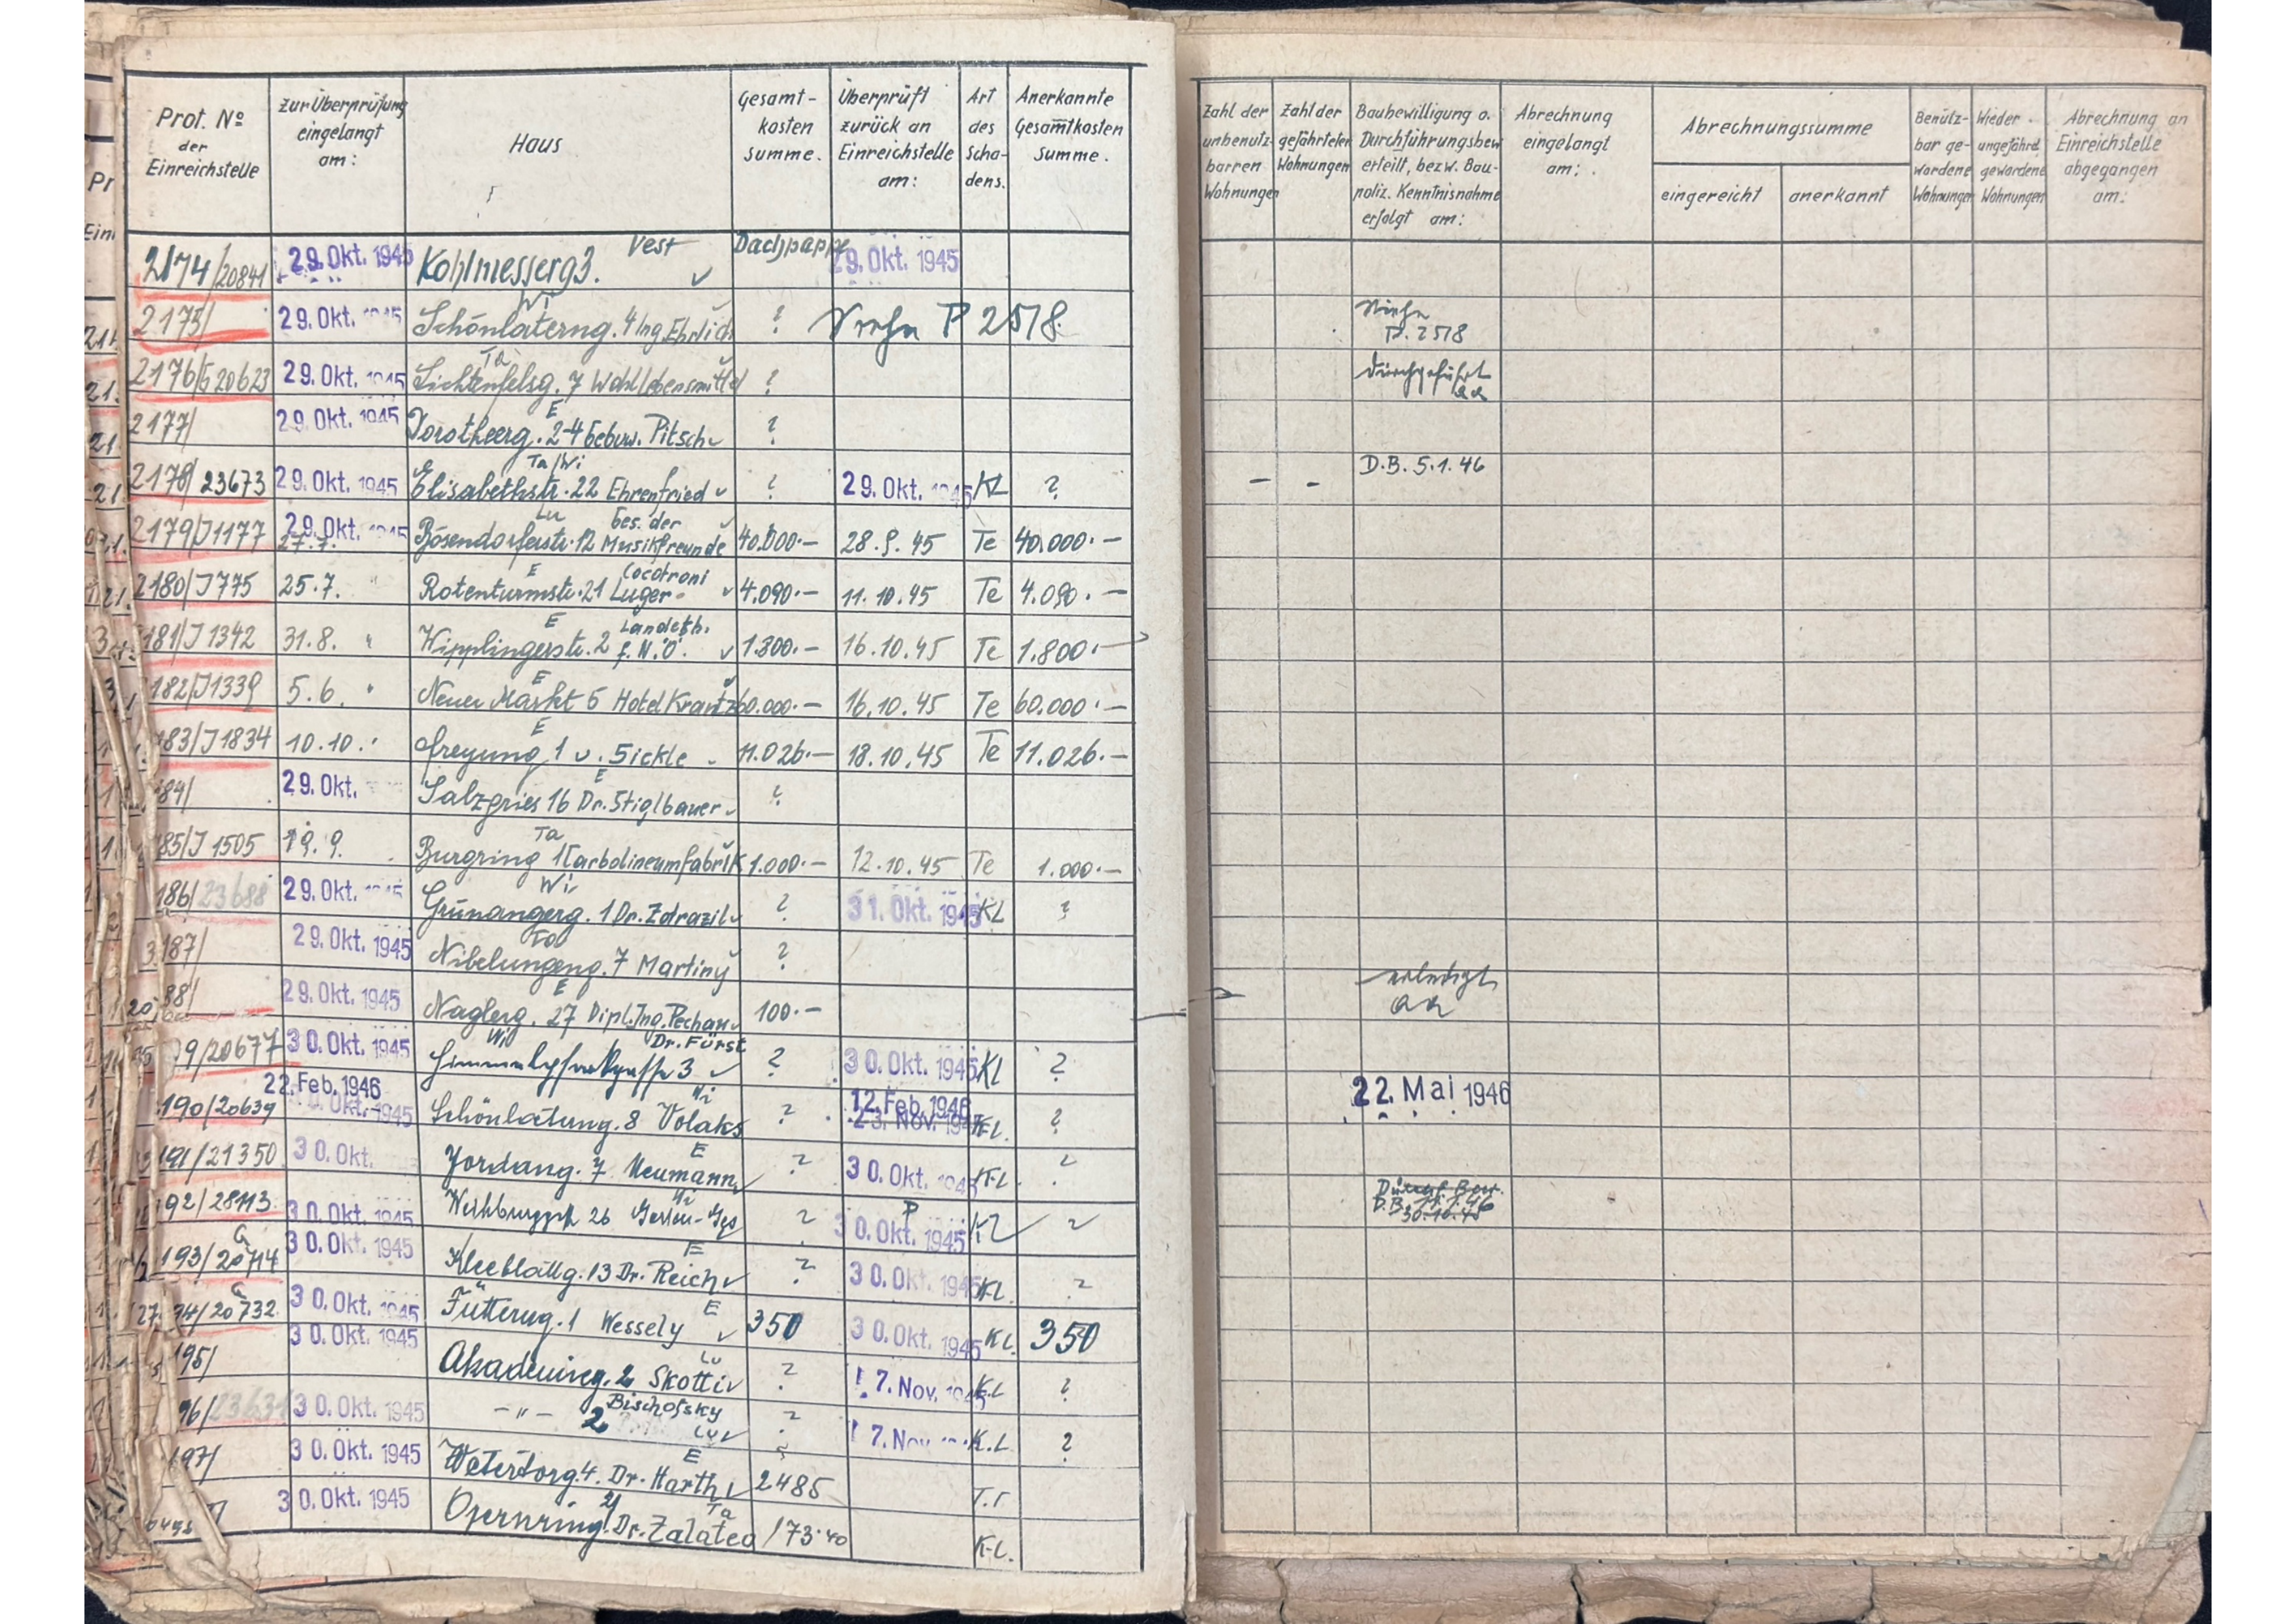 Prot. No der Einreichstelle
zur Überprüfung eingelangt am:
Haus
Gesamt-kosten summe.
Überprüft zurück an Einreichstelle am:
Art des Scha-dens.
Anerkannte Gesamtkosten summe.
Zahl der unbenutz-barren Wohnungen
Zahl der gefährteten Wohnungen
Baubewilligung o. Durchführungsbew erteilt, bezw. Bau-poliz. Kenntnisnahme erfolgt am:
Abrechnung eingelangt am:
Abrechnungssumme
eingereicht
anerkannt
Benütz-bar ge-wordene Wohnungen
Wieder ungefährd. gewordene Wohnungen
Abrechnung an Einreichstelle abgegangen am:
2174/20841 29. Okt. 1945 Kohlmesserg 3. Vest Dachpappe 29. Okt. 1945
2175/ 29. Okt. 1945 Schönlaterng. 4 Ing. Ehrlich Wi ? Siehe P 2518. Siehe P. 2518
2176/G 20623 29. Okt. 1945 Lichtenfelsg. 7 Wohl Lebensmittel Ta ? durchgeführt
2177/ 29. Okt. 1945 Dorotheerg. 2-4 Gebrüd. Pitsch E ?
2178/23673 29. Okt. 1945 Elisabethstr. 22 Ehrenfried Ta/Wi ? 29. Okt. 1945 KL ? - - D.B. 5.1.46
2179/J1177 29. Okt. 1945 27.7. Bösendorferstr. 12 Ges. der Musikfreunde Lu 40.000.— 28.9.45 Te 40.000.—
2180/J775 25.7. " Rotenturmstr. 21 Luger E 4.090.— 11.10.45 Te 4.090.—
181/J1342 31.8. " Wipplingerstr. 2 f. N.Ö. E 1.800.— 16.10.45 Te 1.800.—
182/J1339 5.6. " Neuer Markt 5 Hotel Krantz E 60.000.— 16.10.45 Te 60.000.—
183/J1834 10.10. " Freyung 1 v. Sickle E 11.026.— 18.10.45 Te 11.026.—
84/ 29. Okt. Salzgries 16 Dr. Stiglbauer E ?
85/J1505 19.9. Burgring 1 Carbolineumfabrik Ta 1.000.— 12.10.45 Te 1.000.—
186/23688 29. Okt. 1945 Grünangerg. 1 Dr. Zdrazil Wi ? 31. Okt. 1945 KL ?
187/ 29. Okt. 1945 Nibelungeng. 7 Martiny Ta ? erledigt
88/ 29. Okt. 1945 Naglerg. 27 Dipl. Ing. Pechan E 100.—
9/20677 30. Okt. 1945 Himmelpfortgasse 3 Dr. Fürst Wi ? 30. Okt. 1945 KL ?
190/20639 22. Feb. 1946 30. Okt. 1945 Schönlaterng. 8 Volaks Wi ? 12. Feb. 1946 23. Nov. 1945 KL. ? 22. Mai 1946
191/21350 30. Okt. Jordang. 7 Neumann E ? 30. Okt. 1945 KL. ?
92/28113 30. Okt. 1945 Weihburgg. 26 Wi ? P 30. Okt. 1945 KL ? D.B. 11.1.46 30.10.45
193/G 20714 30. Okt. 1945 Kleeblattg. 13 Dr. Reich E ? 30. Okt. 1945 KL. ?
94/G 20732 30. Okt. 1945 Fütterug. 1 Wessely E 350 30. Okt. 1945 KL. 350
195/ 30. Okt. 1945 Akademieg. 2 Skotti Lu ? 17. Nov. 1945 K.L ?
96/23631 30. Okt. 1945 - " - 2 Bischofsky Lu ? 17. Nov. K.L ?
197/ 30. Okt. 1945 Weterdorg. 4. Dr. Harth E 2485 T.T
30. Okt. 1945 Opernring Dr. Zalateo Ta 173.40 K-L.